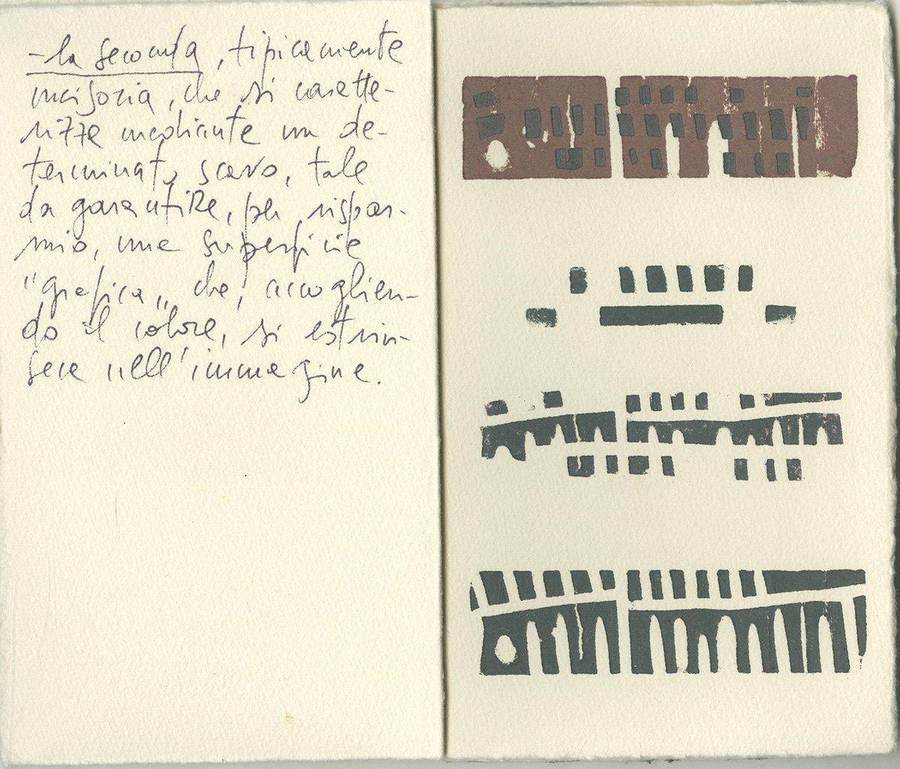 - la seconda, tipicamente
incisoria, che si caratte-
rizza mediante un de-
terminato scavo, tale
da garantire, per rispar-
mio, una superficie
"grafica" che, accoglien-
do il colore, si estrin-
seca nell'immagine.